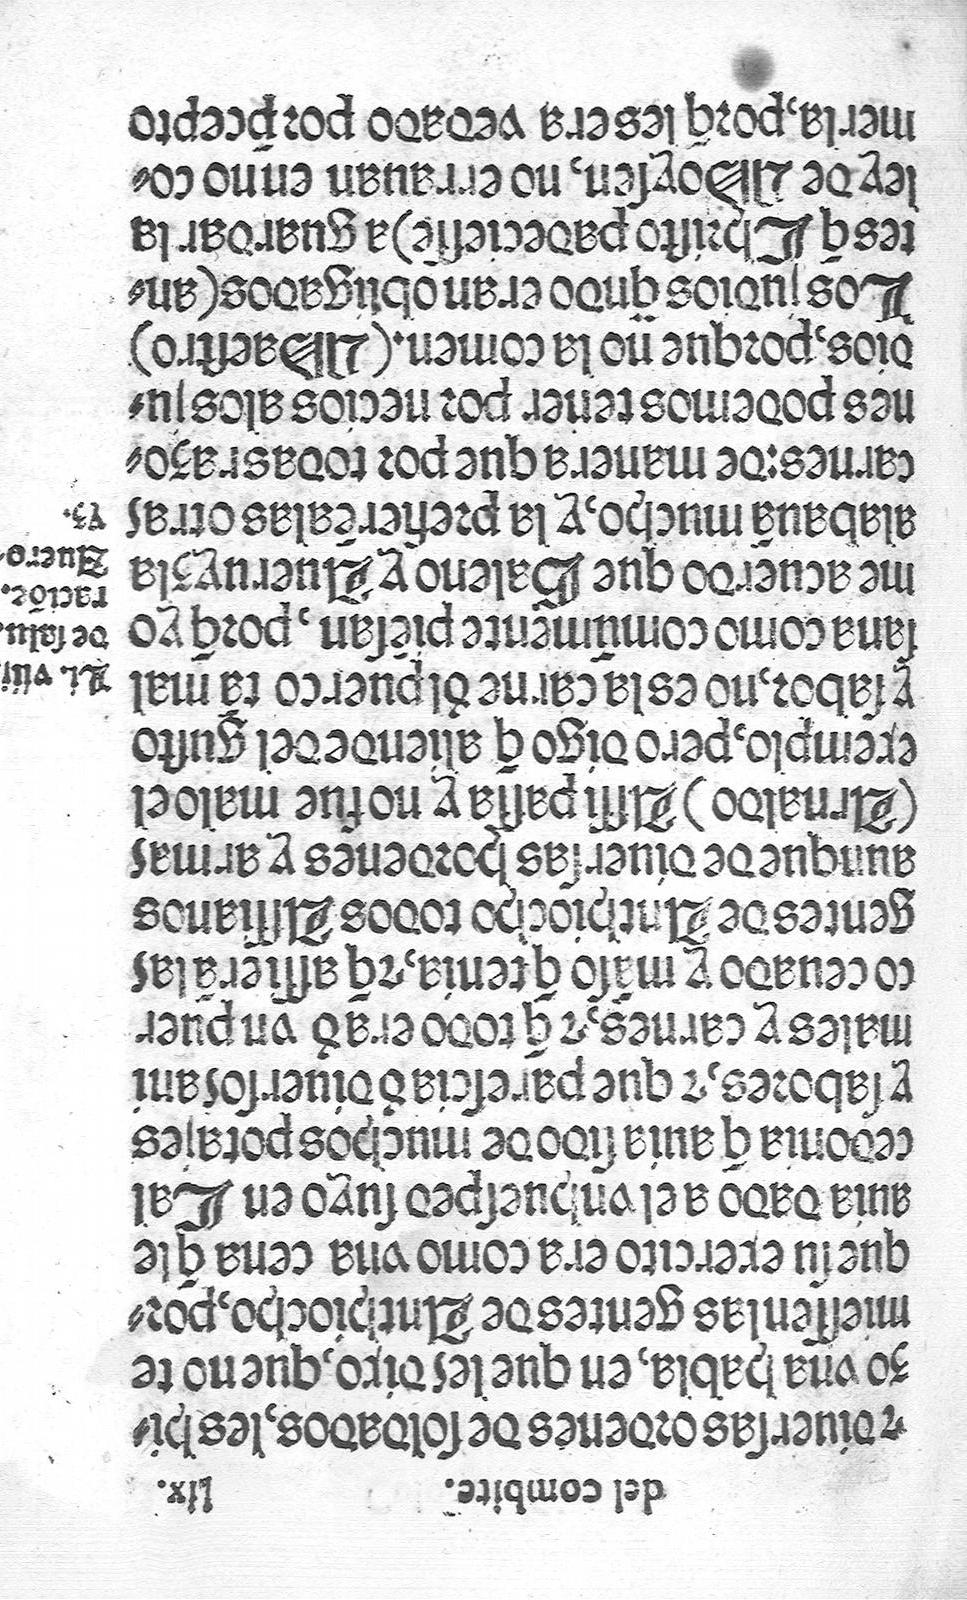 del combite. Llx.
⁊ diuersas ordenes de soldados, les hi⸗
zo vña habla, en que les dixo, que no te
miessen las gentes de Anthiocho, por⸗
que su exercito era como vna cena q̃ le
auia dado a el vn huesped suyo en Cal
cedonia q̃ auia sido de muchos potajes
y sabores, ⁊ que parescia d̃ diuersos ani
males y carnes, ⁊ q̃ todo era d̃ vn puer
co cenado y mãso q̃ tenia, ⁊ q̃ assi erã las
gentes de Anthiocho todos Assianos
aunque de diuersas hordenes y armas
(Arnaldo) Assi passa y no fue malo el
exemplo, pero digo q̃ allende del gusto
y sabor, no es la carne d̃l puerco tã mal
sana como comũmente piẽsan, porq̃ yo
me acuerdo que Galeno y Aueruyz la
alabauã mucho, y la prefierẽ a las otras
carnes: de manera que por todas razo⸗
nes podemos tener por necios a los Ju⸗
dios, porque nõ la comen. (Maestro)
Los Judios qũdo eran obligados (an⸗
tes q̃ Christo padeciesse) a guardar la
ley de Moysen, no errauan en no co⸗
merla, porq̃ les era vedado por p̃cepto
Li. viii.
de salu
racioẽ.
Auero⸗
yz.